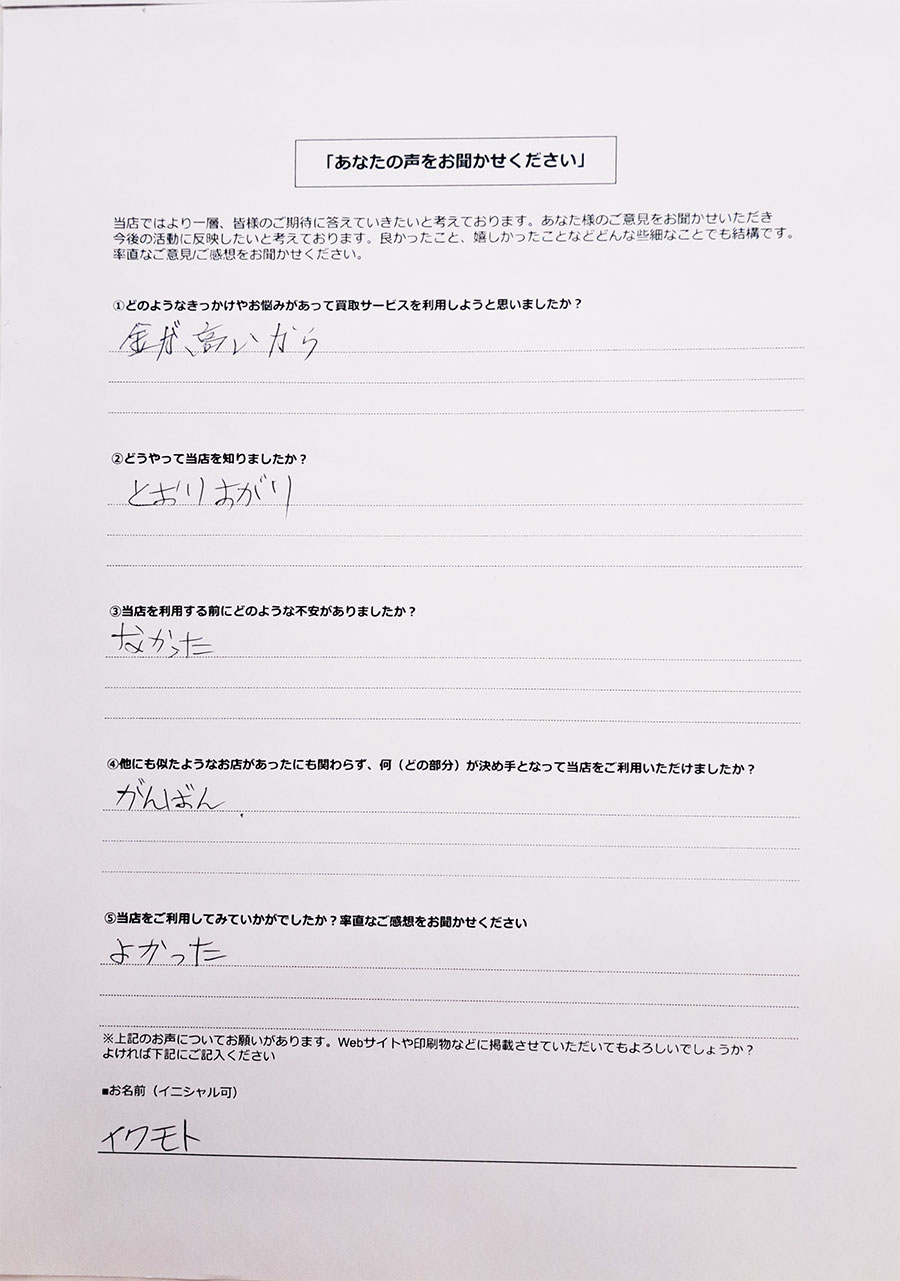 「あなたの声をお聞かせください」
当店ではより一層、皆様のご期待に答えていきたいと考えております。あなた様のご意見をお聞かせいただき
今後の活動に反映したいと考えております。良かったこと、嬉しかったことなどどんな些細なことでも結構です。
率直なご意見/ご感想をお聞かせください。
①どのようなきっかけやお悩みがあって買取サービスを利用しようと思いましたか？
金が、高いから
②どうやって当店を知りましたか？
とおりおがり
③当店を利用する前にどのような不安がありましたか？
なかった
④他にも似たようなお店があったにも関わらず、何（どの部分）が決め手となって当店をご利用いただけましたか？
がんばん
⑤当店をご利用してみていかがでしたか？率直なご感想をお聞かせください
よかった
※上記のお声についてお願いがあります。Webサイトや印刷物などに掲載させていただいてもよろしいでしょうか？
よければ下記にご記入ください
■お名前（イニシャル可）
イワモト